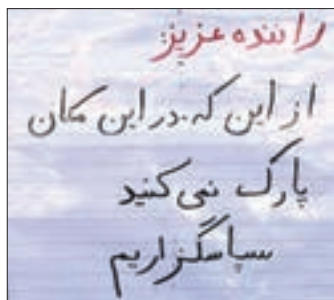 راننده عزیز
از این که در این مکان
پارک نمی کنید
سپاسگزاریم